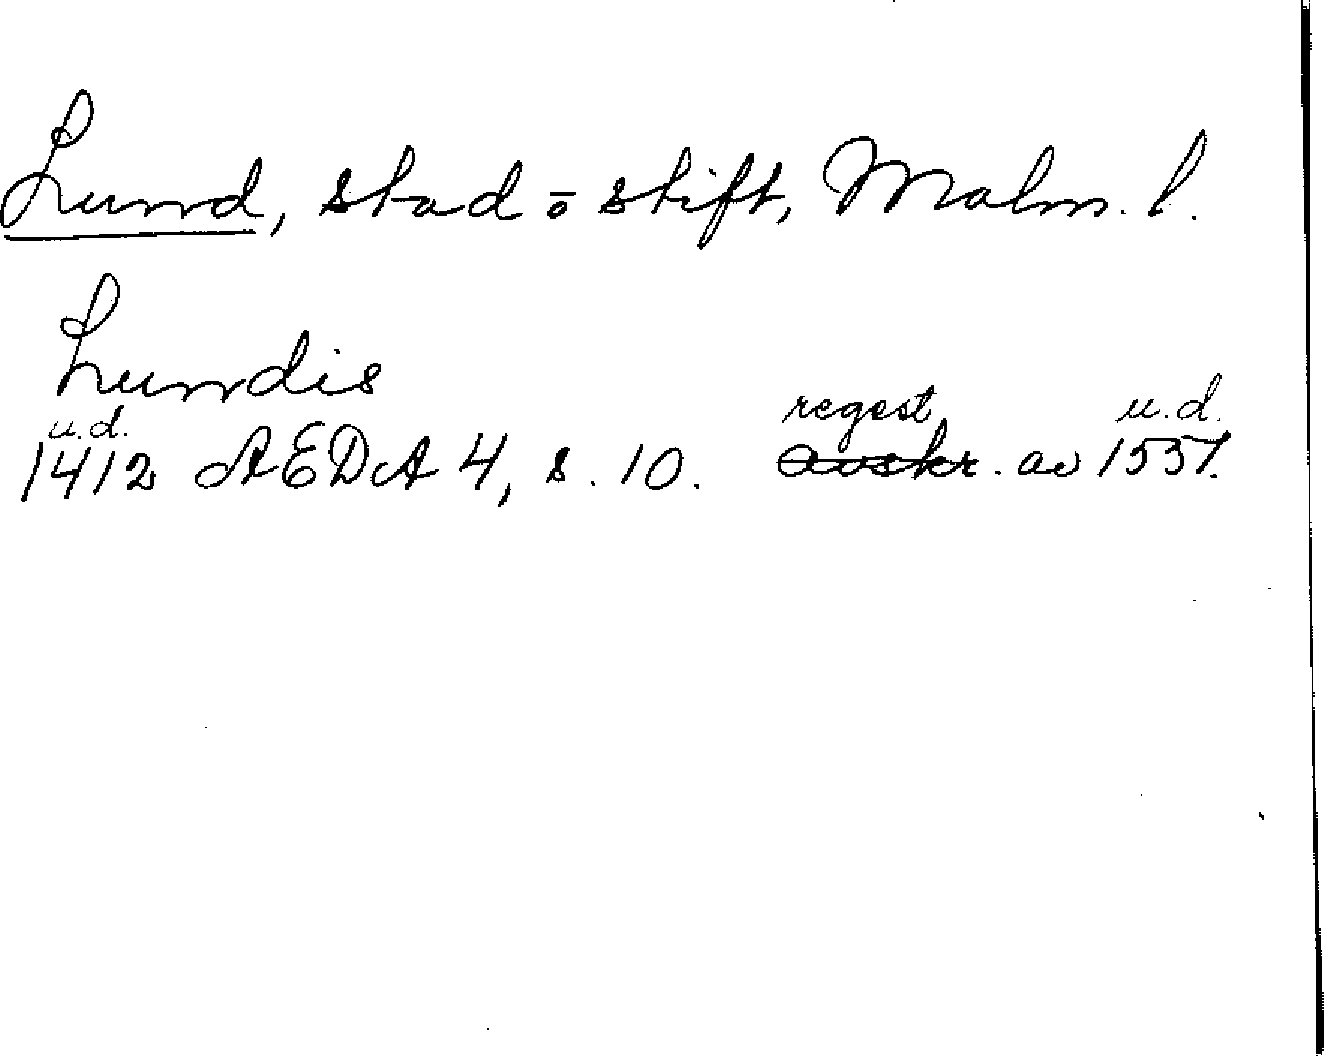 Lund, stad o stift, Malm. l.
Lundis
u.d. regest u.d.
1412 AEDA 4, s. 10. avskr. av 1557.